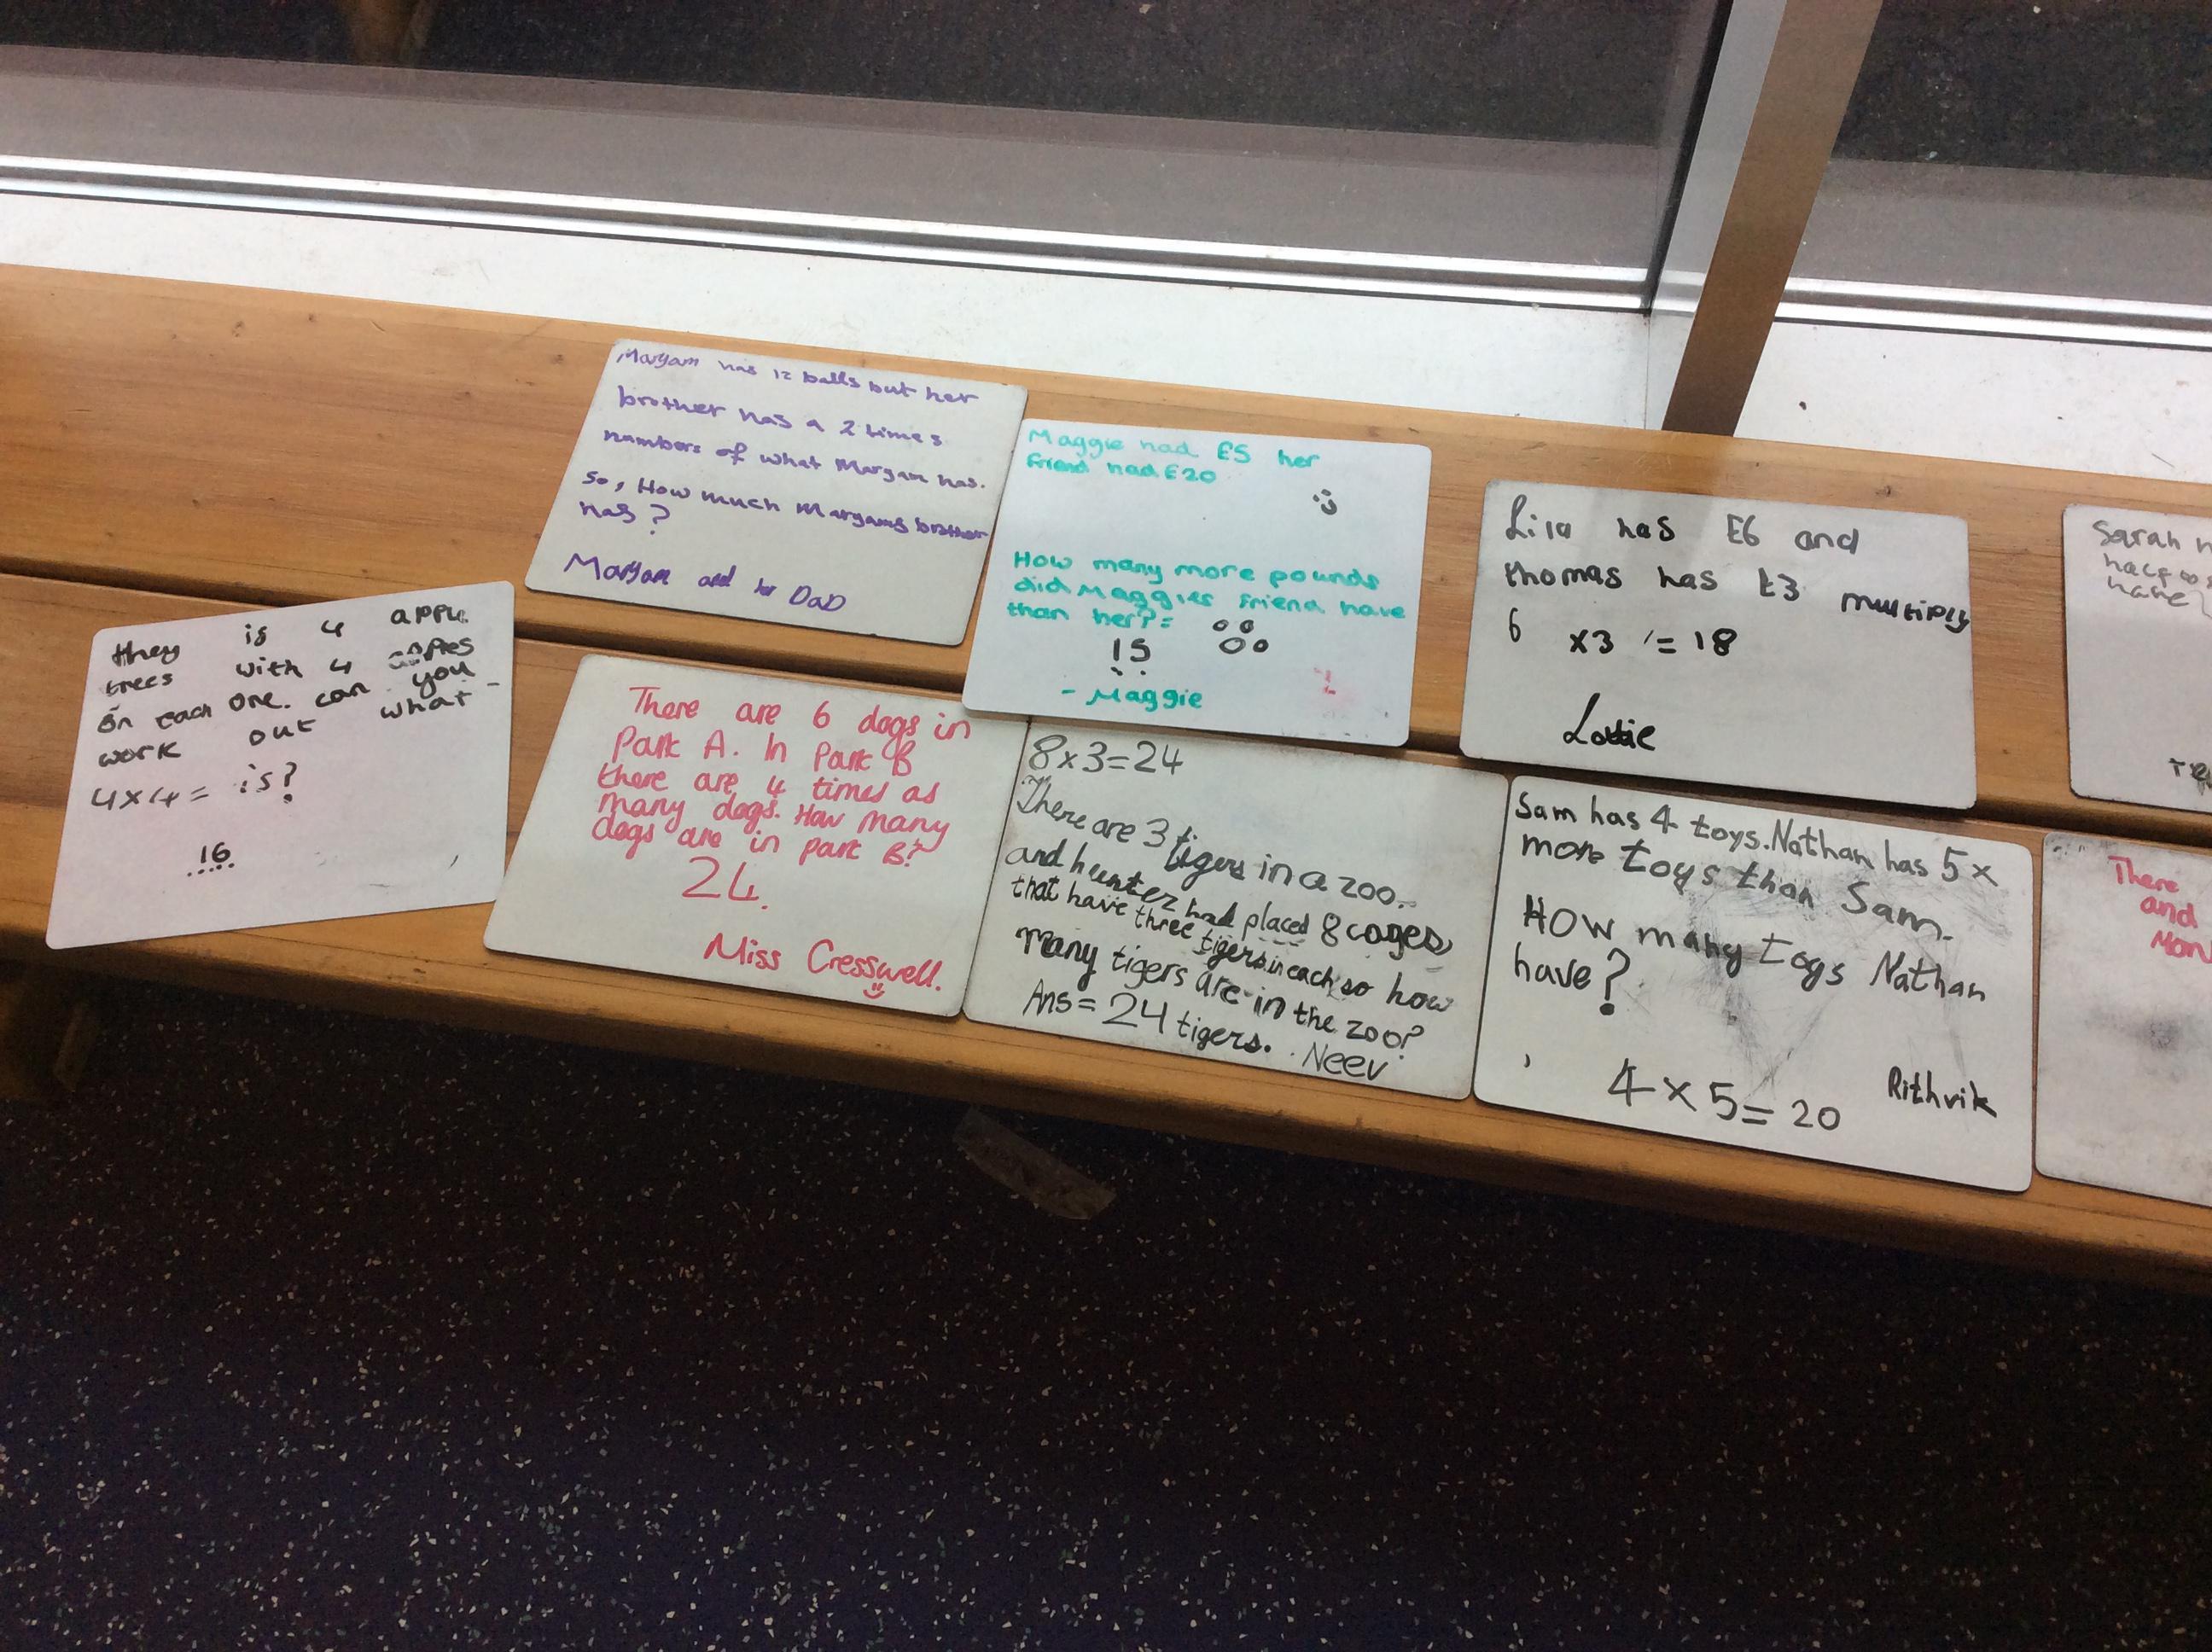 Maryam has 12 balls but her
brother has a 2 times
numbers of what Maryam has.
So, How much Maryams brother
has?
Maryam and her DaD
Maggie had £5 her
friend had £20
How many more pounds
did Maggies friend have
than her? =
15
- Maggie
Lisa has £6 and
thomas has £3 multiply
6 x3 = 18
Lottie
Sarah
half
have
they is 4 apple
trees with 4 apples
on each one. can you
work out what
4x4= is?
16
There are 6 dogs in
Park A. In Park B
there are 4 times as
many dogs. How many
dogs are in park B?
24.
Miss Cresswell.
8x3=24
There are 3 tigers in a zoo.
and hunter had placed 8 cages
that have three tigers in each so how
many tigers are in the zoo?
Ans = 24 tigers. Neev
Sam has 4 toys. Nathan has 5x
more toys than Sam.
How many toys Nathan
have?
4 x 5 = 20
Rithvik
There
and
Mon